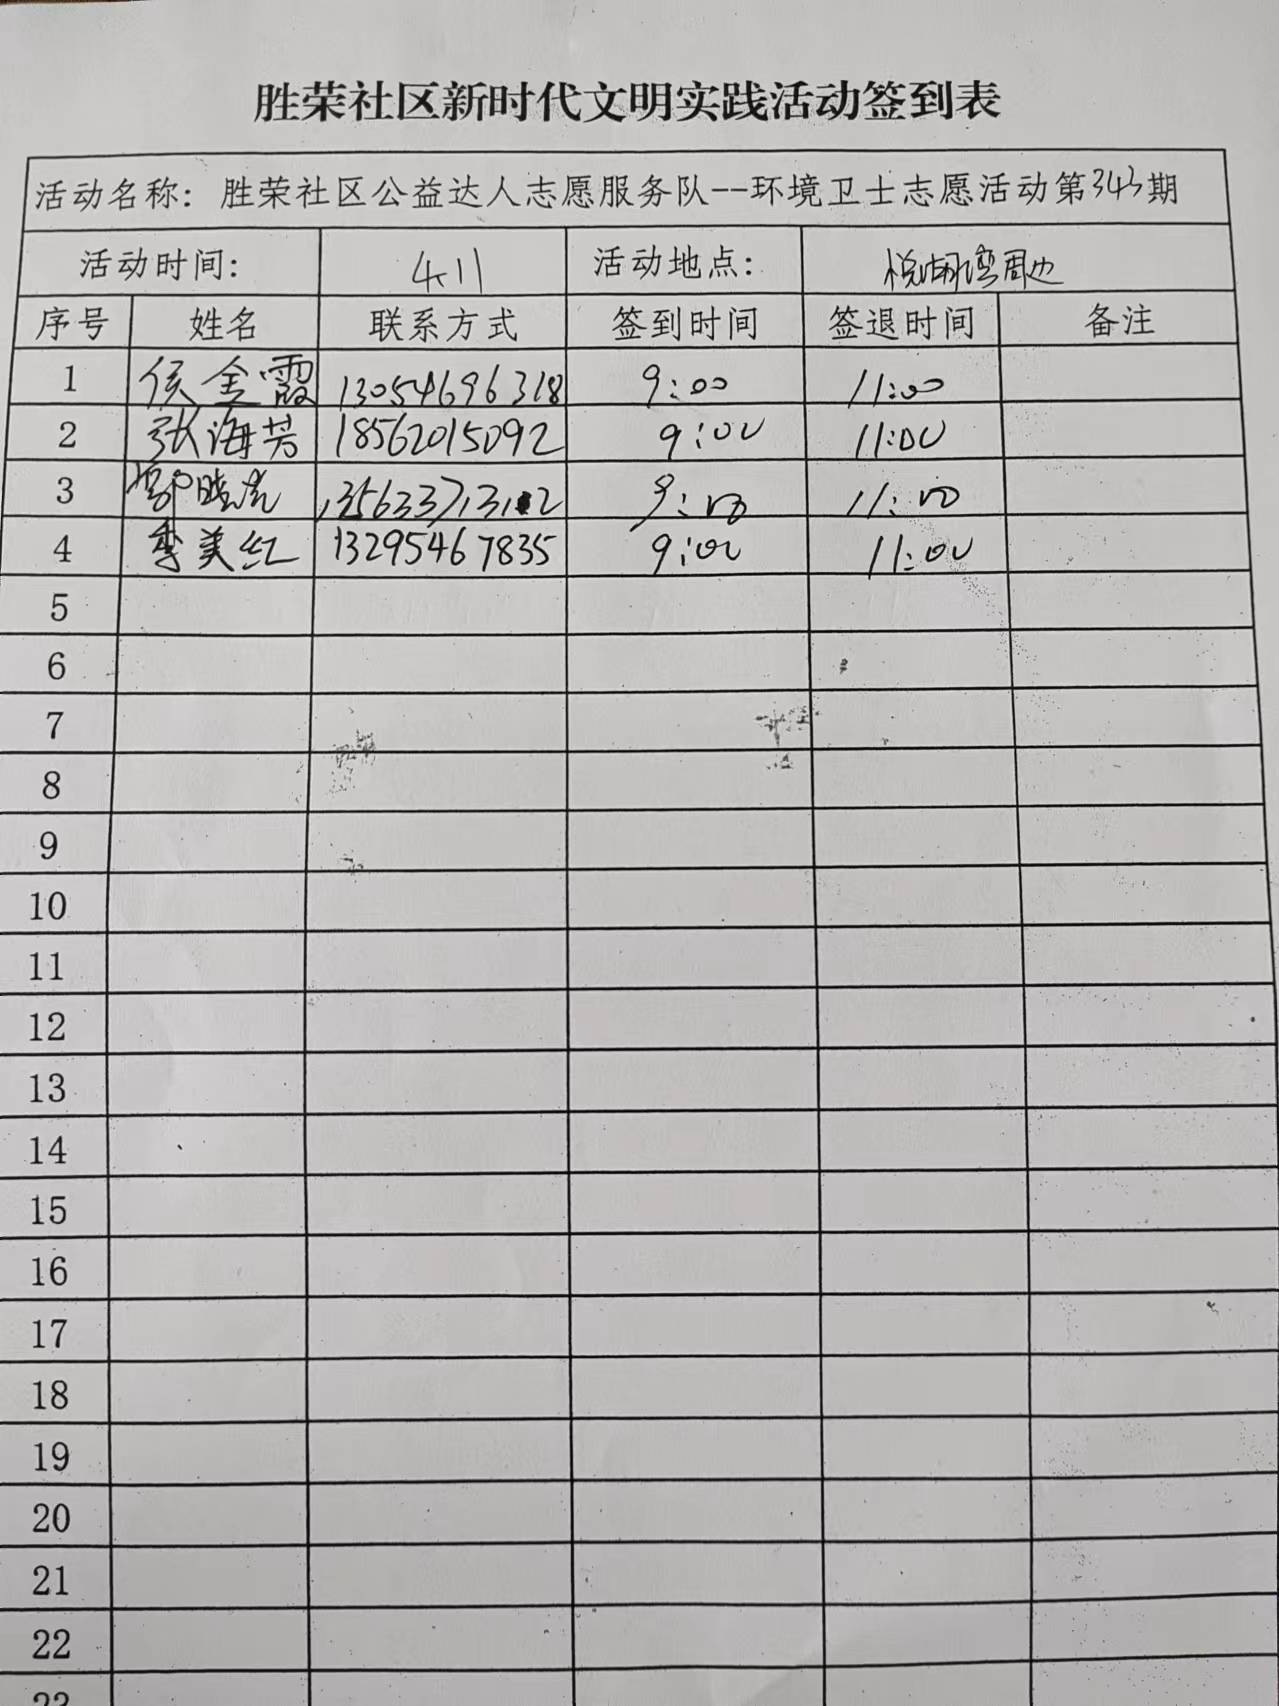 胜荣社区新时代文明实践活动签到表
活动名称：胜荣社区公益达人志愿服务队--环境卫士志愿活动第343期
活动时间： 4.11 活动地点： 悦湖湾周边
序号 姓名 联系方式 签到时间 签退时间 备注
1 侯金霞 13054696318 9:00 11:00
2 张海芳 18562015092 9:00 11:00
3 9:00 11:00
4 李美红 13295467835 9:00 11:00
5
6
7
8
9
10
11
12
13
14
15
16
17
18
19
20
21
22
23